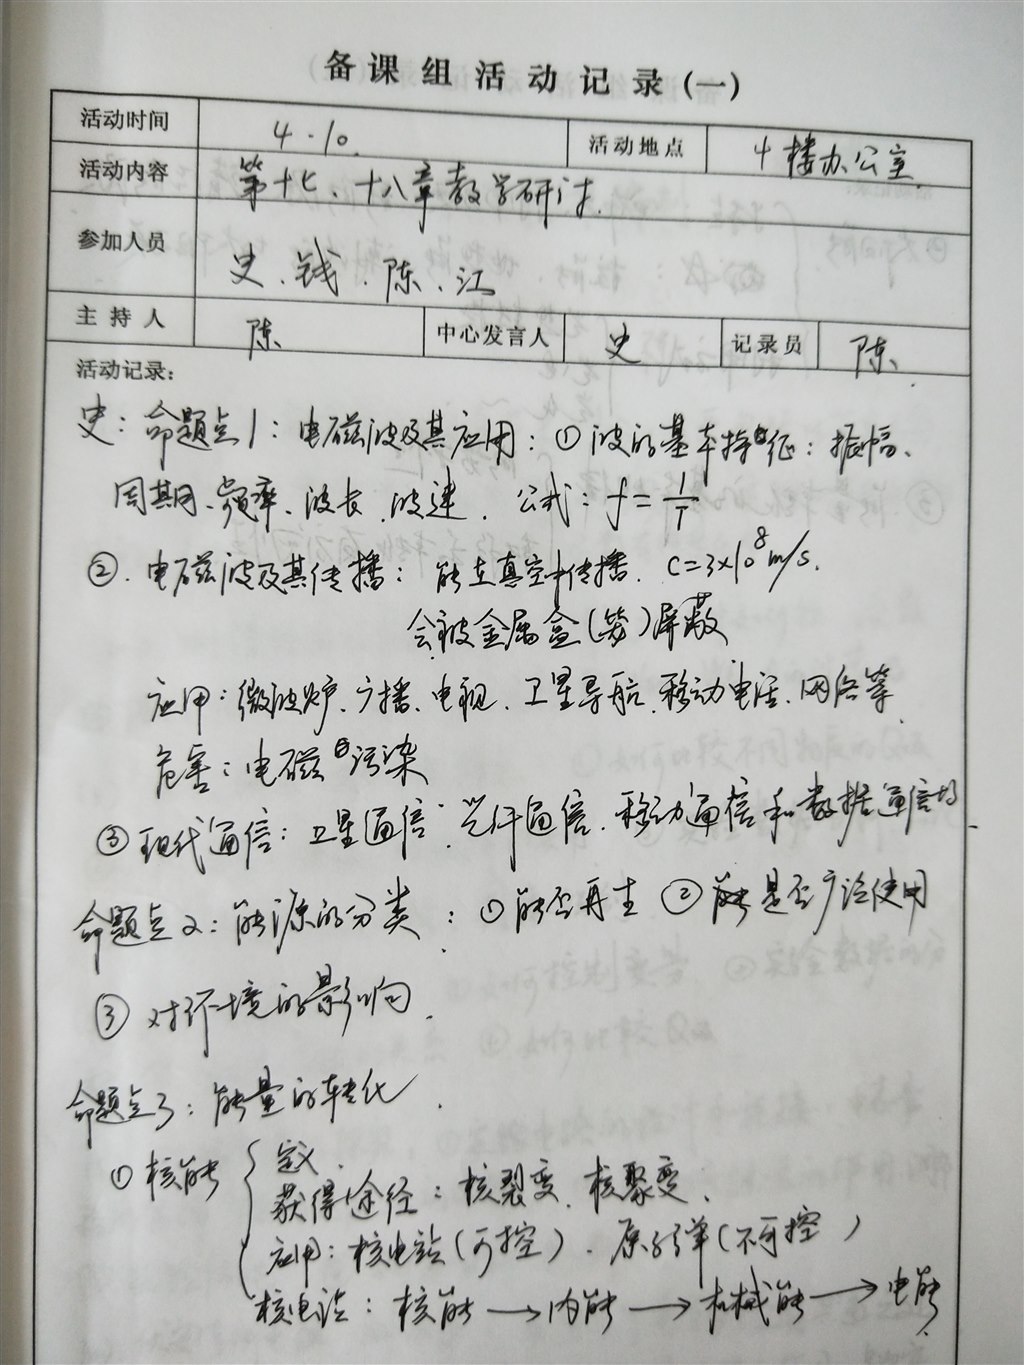 备课组活动记录(一)
活动时间 4.10. 活动地点 4楼办公室.
活动内容 第十七、十八章教学研讨.
参加人员 史、钱、陈、江
主持人 陈 中心发言人 史 记录员 陈.
活动记录:
史:命题点1:电磁波及其应用:①波的基本特征:振幅、
周期、频率、波长、波速. 公式:f=1/T
②.电磁波及其传播:能在真空中传播. C=3×10⁸m/s.
会被金属盒(等)屏蔽
应用:微波炉、广播、电视、卫星导航、移动电话、网络等.
危害:电磁污染
③现代通信:卫星通信、光纤通信、移动通信和数据通信
命题点2:能源的分类:①能否再生 ②是否广泛使用
③对环境的影响.
命题点3:能量的转化.
①核能 定义.
获得途径:核裂变、核聚变.
应用:核电站(可控)、原子弹(不可控)
核电站:核能→内能→机械能→电能.